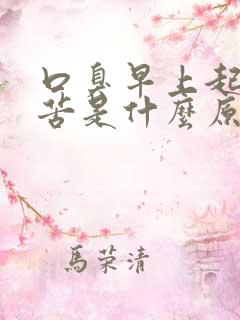 口臭早上起
苦是什麼原
馬荣清